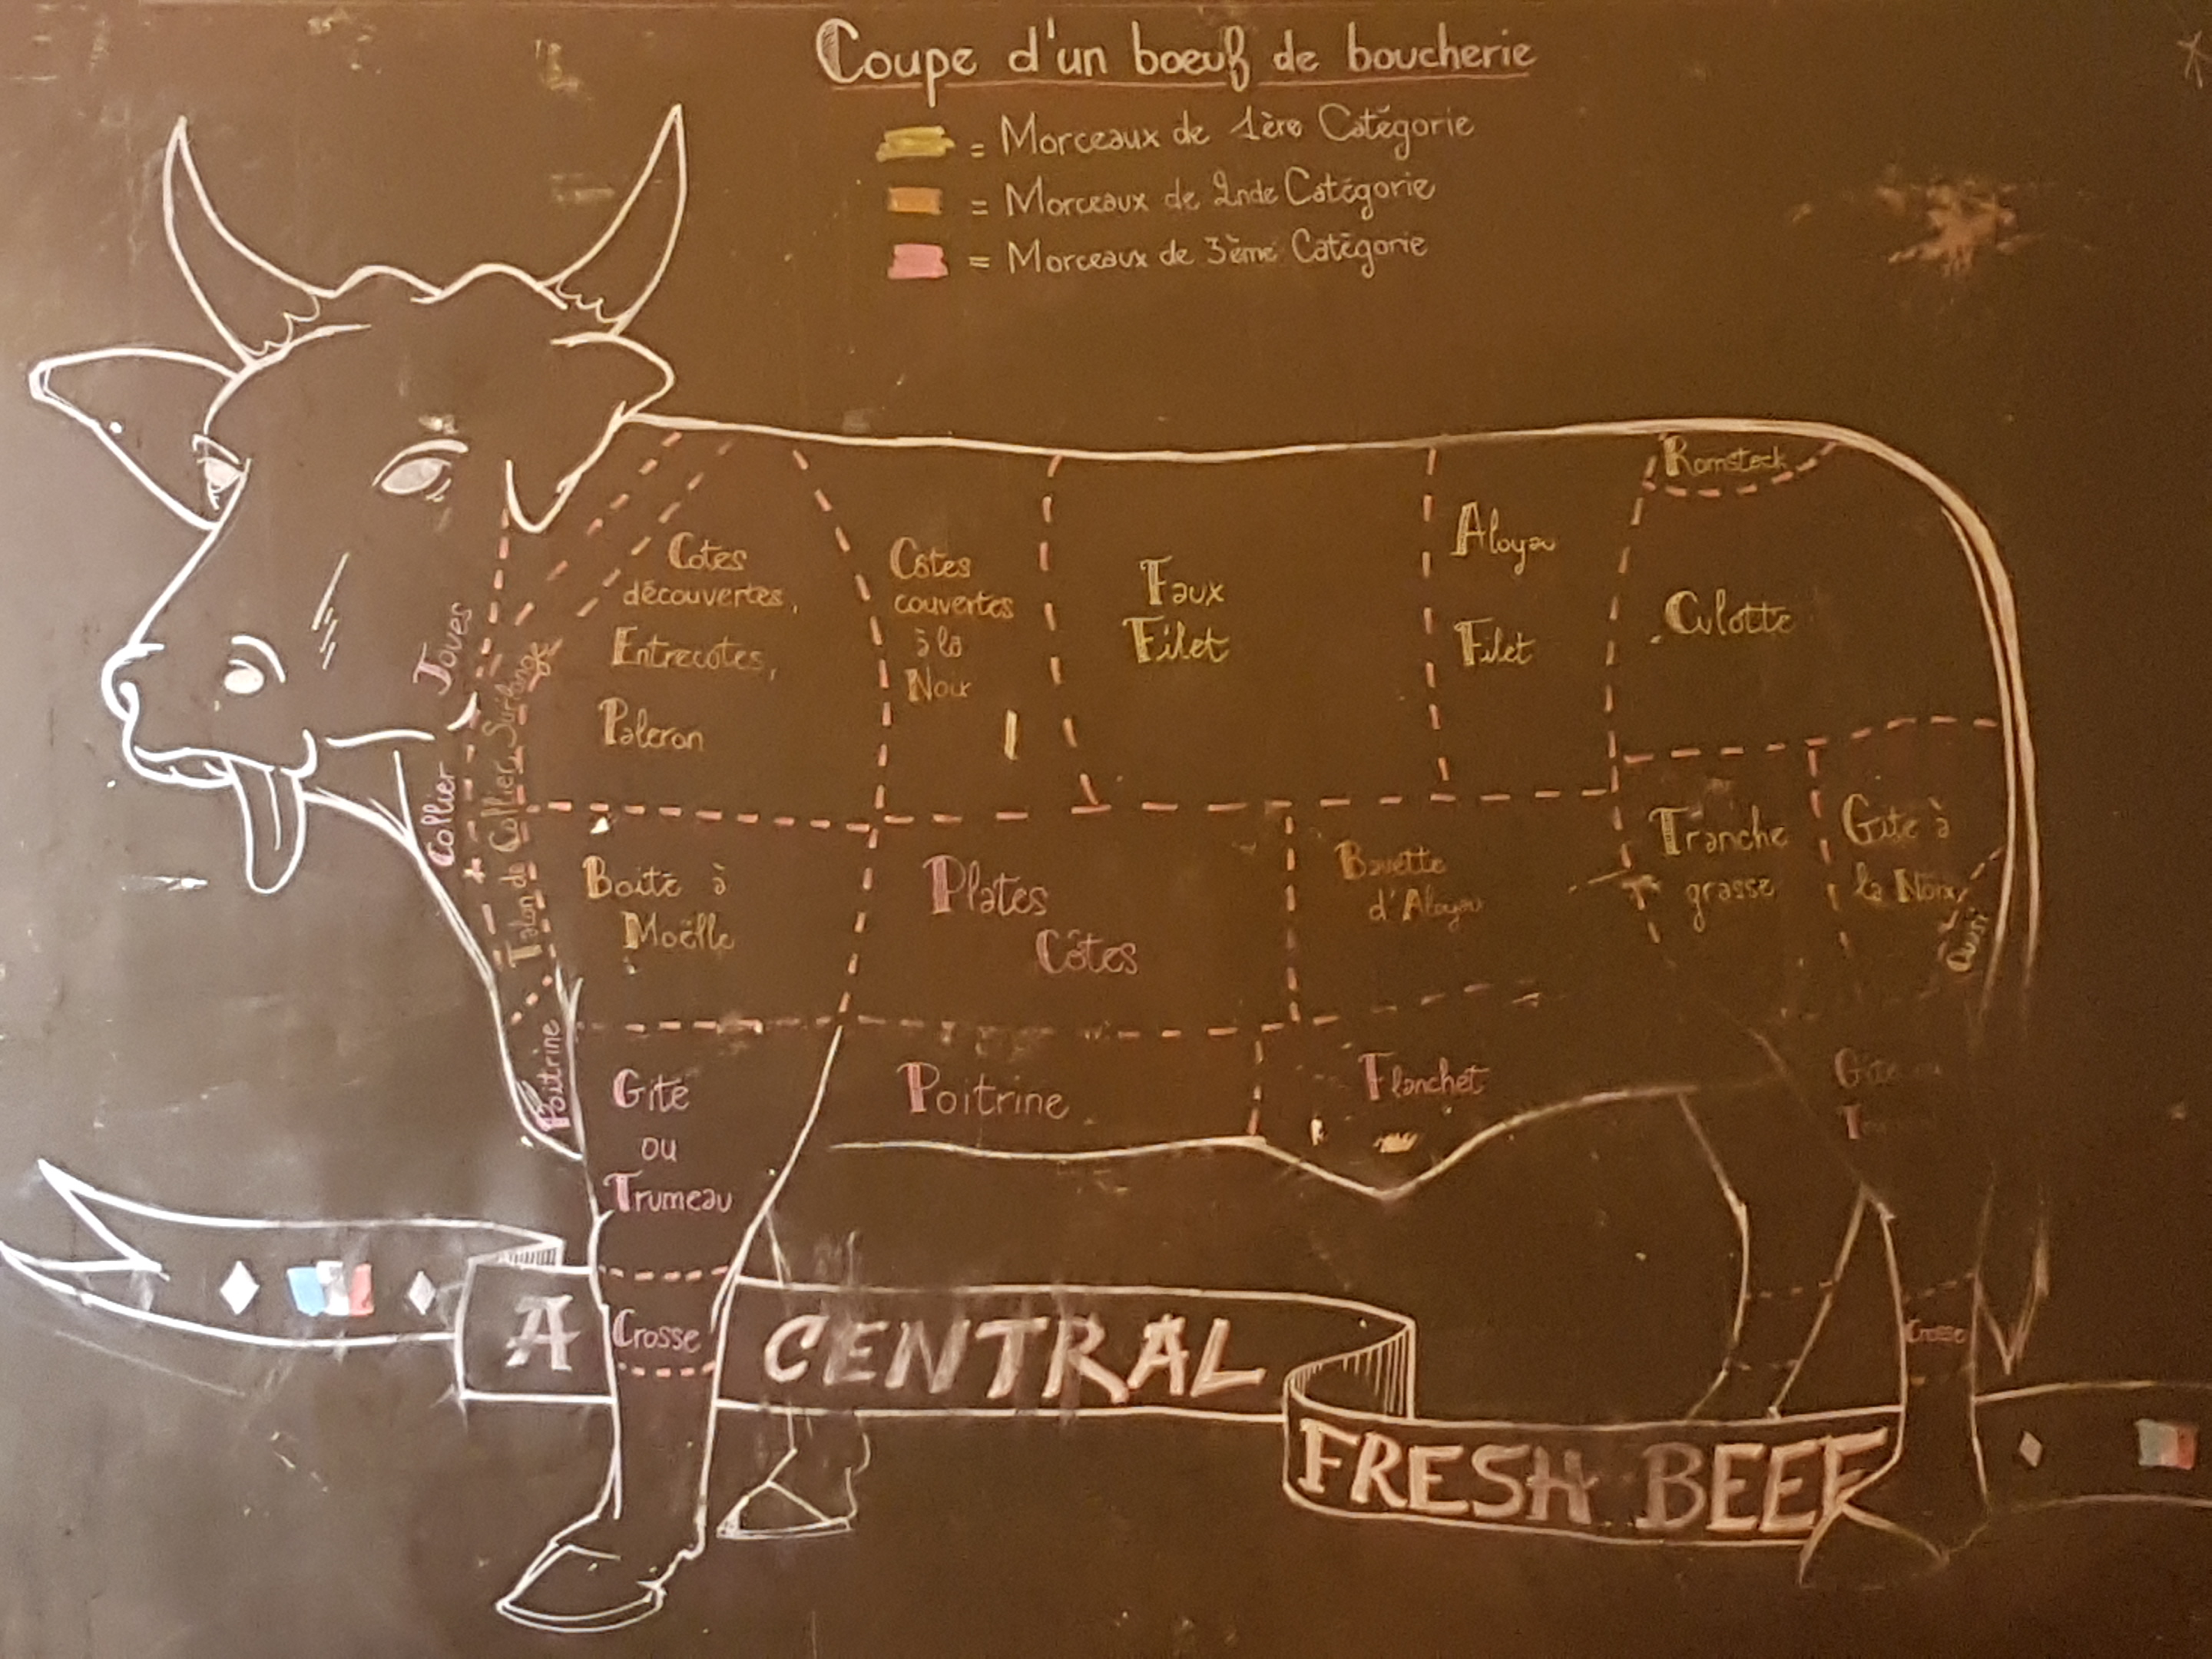 Coupe d'un boeuf de boucherie
= Morceaux de 1ère Catégorie
= Morceaux de 2nde Catégorie
= Morceaux de 3ème Catégorie
Joues
Collier
Talon de Collier, Surlonge
Cotes
découvertes,
Entrecotes,
Paleron
Côtes
couvertes
à la
Noix
Faux
Filet
Aloyau
Filet
Romsteck
Culotte
Boite à
Moëlle
Plates
Côtes
Bavette
d'Aloyau
Tranche
grasse
Gite à
la Noix
Poitrine
Gite
ou
Trumeau
Poitrine
Flanchet
Gite
Crosse
Crosse
A CENTRAL
FRESH BEEF